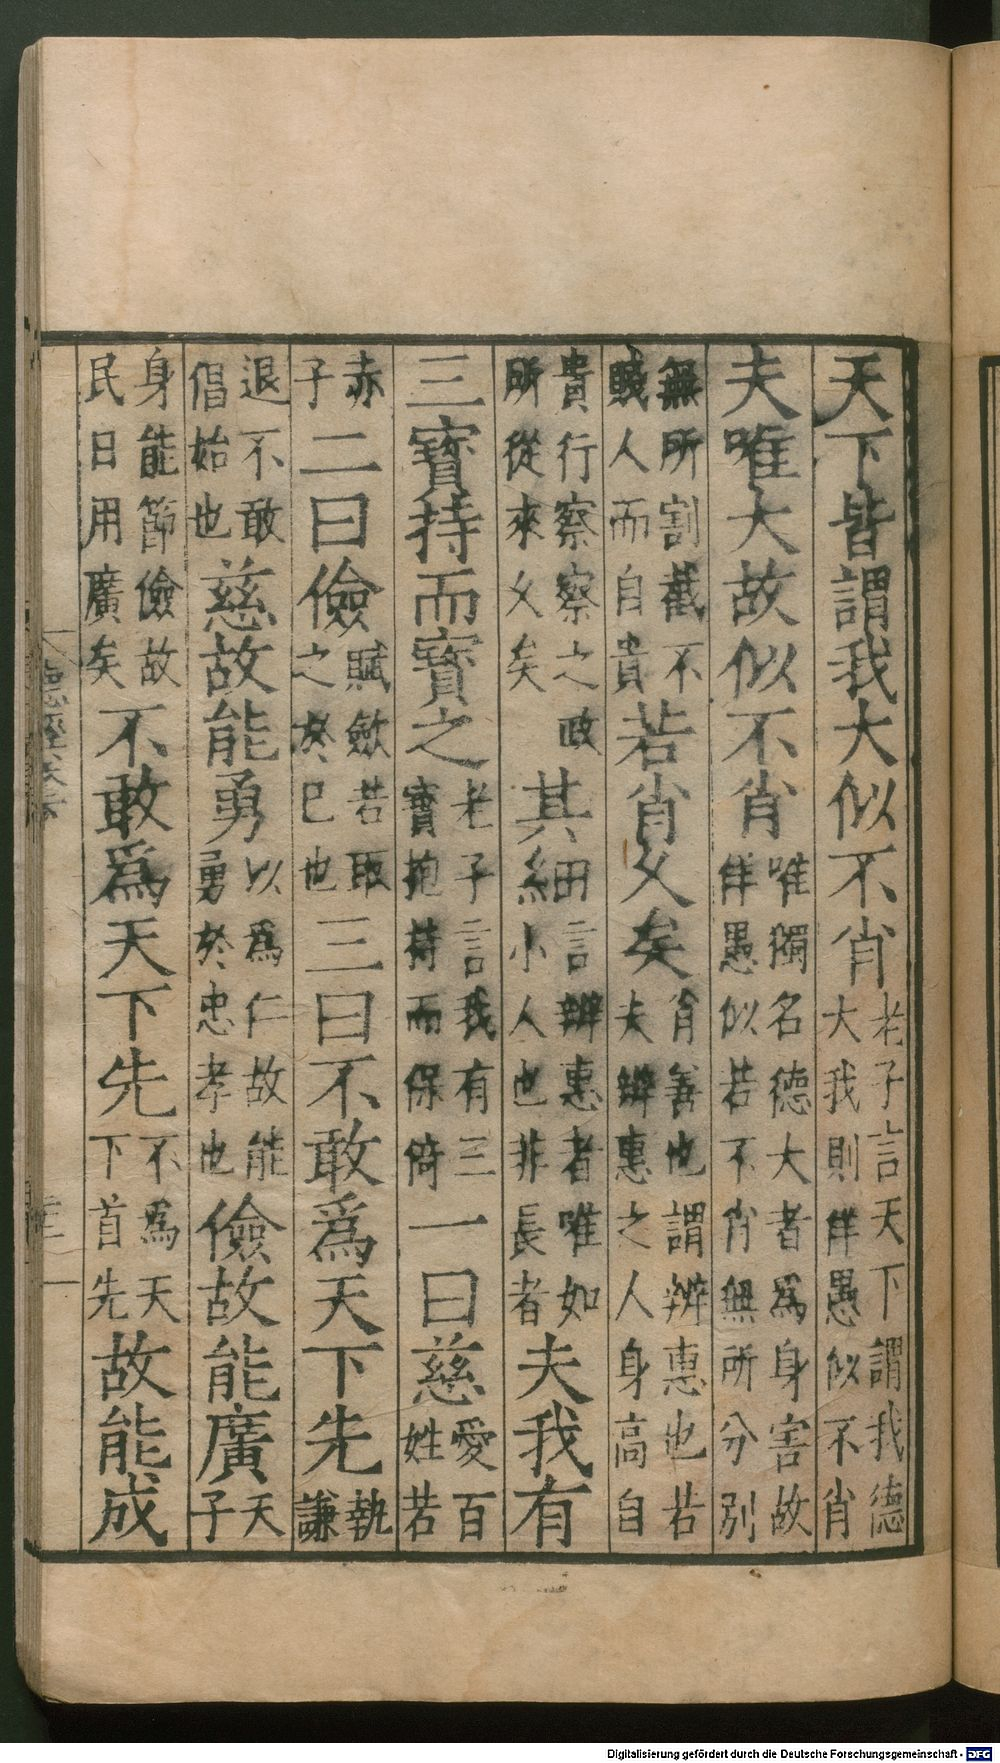 天下皆謂我大似不肖老子言天下謂我德大我則佯愚似不肖
夫唯大故似不肖唯獨名德大者爲身害故佯愚似若不肖無所分別
無所割截不賤人而自貴若肖乆矣肖善也謂辨惠也若夫辨惠之人身高自
貴行察察之政所從來乆矣其細言辨惠者唯如小人也非長者夫我有
三寶持而寳之老子言我有三寳抱持而保倚一曰慈愛百姓若
赤子二曰儉賦歛若取之於己也三曰不敢爲天下先執謙
退不敢倡始也慈故能勇以爲仁故能勇於忠孝也儉故能廣天子
身能節儉故民日用廣矣不敢爲天下先不爲天下首先故能成
Digitalisierung gefördert durch die Deutsche Forschungsgemeinschaft - DFG